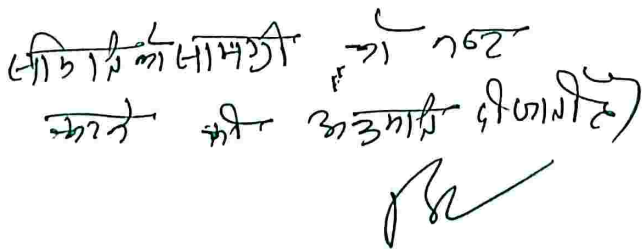 सामग्री को नष्ट
करने की अनुमति दी जाती है